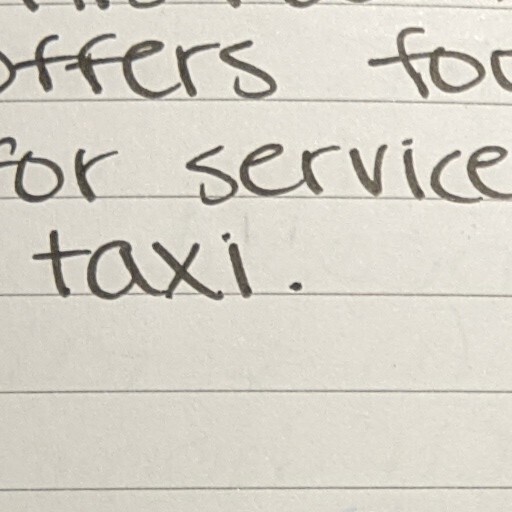 offers foo
for service
taxi.